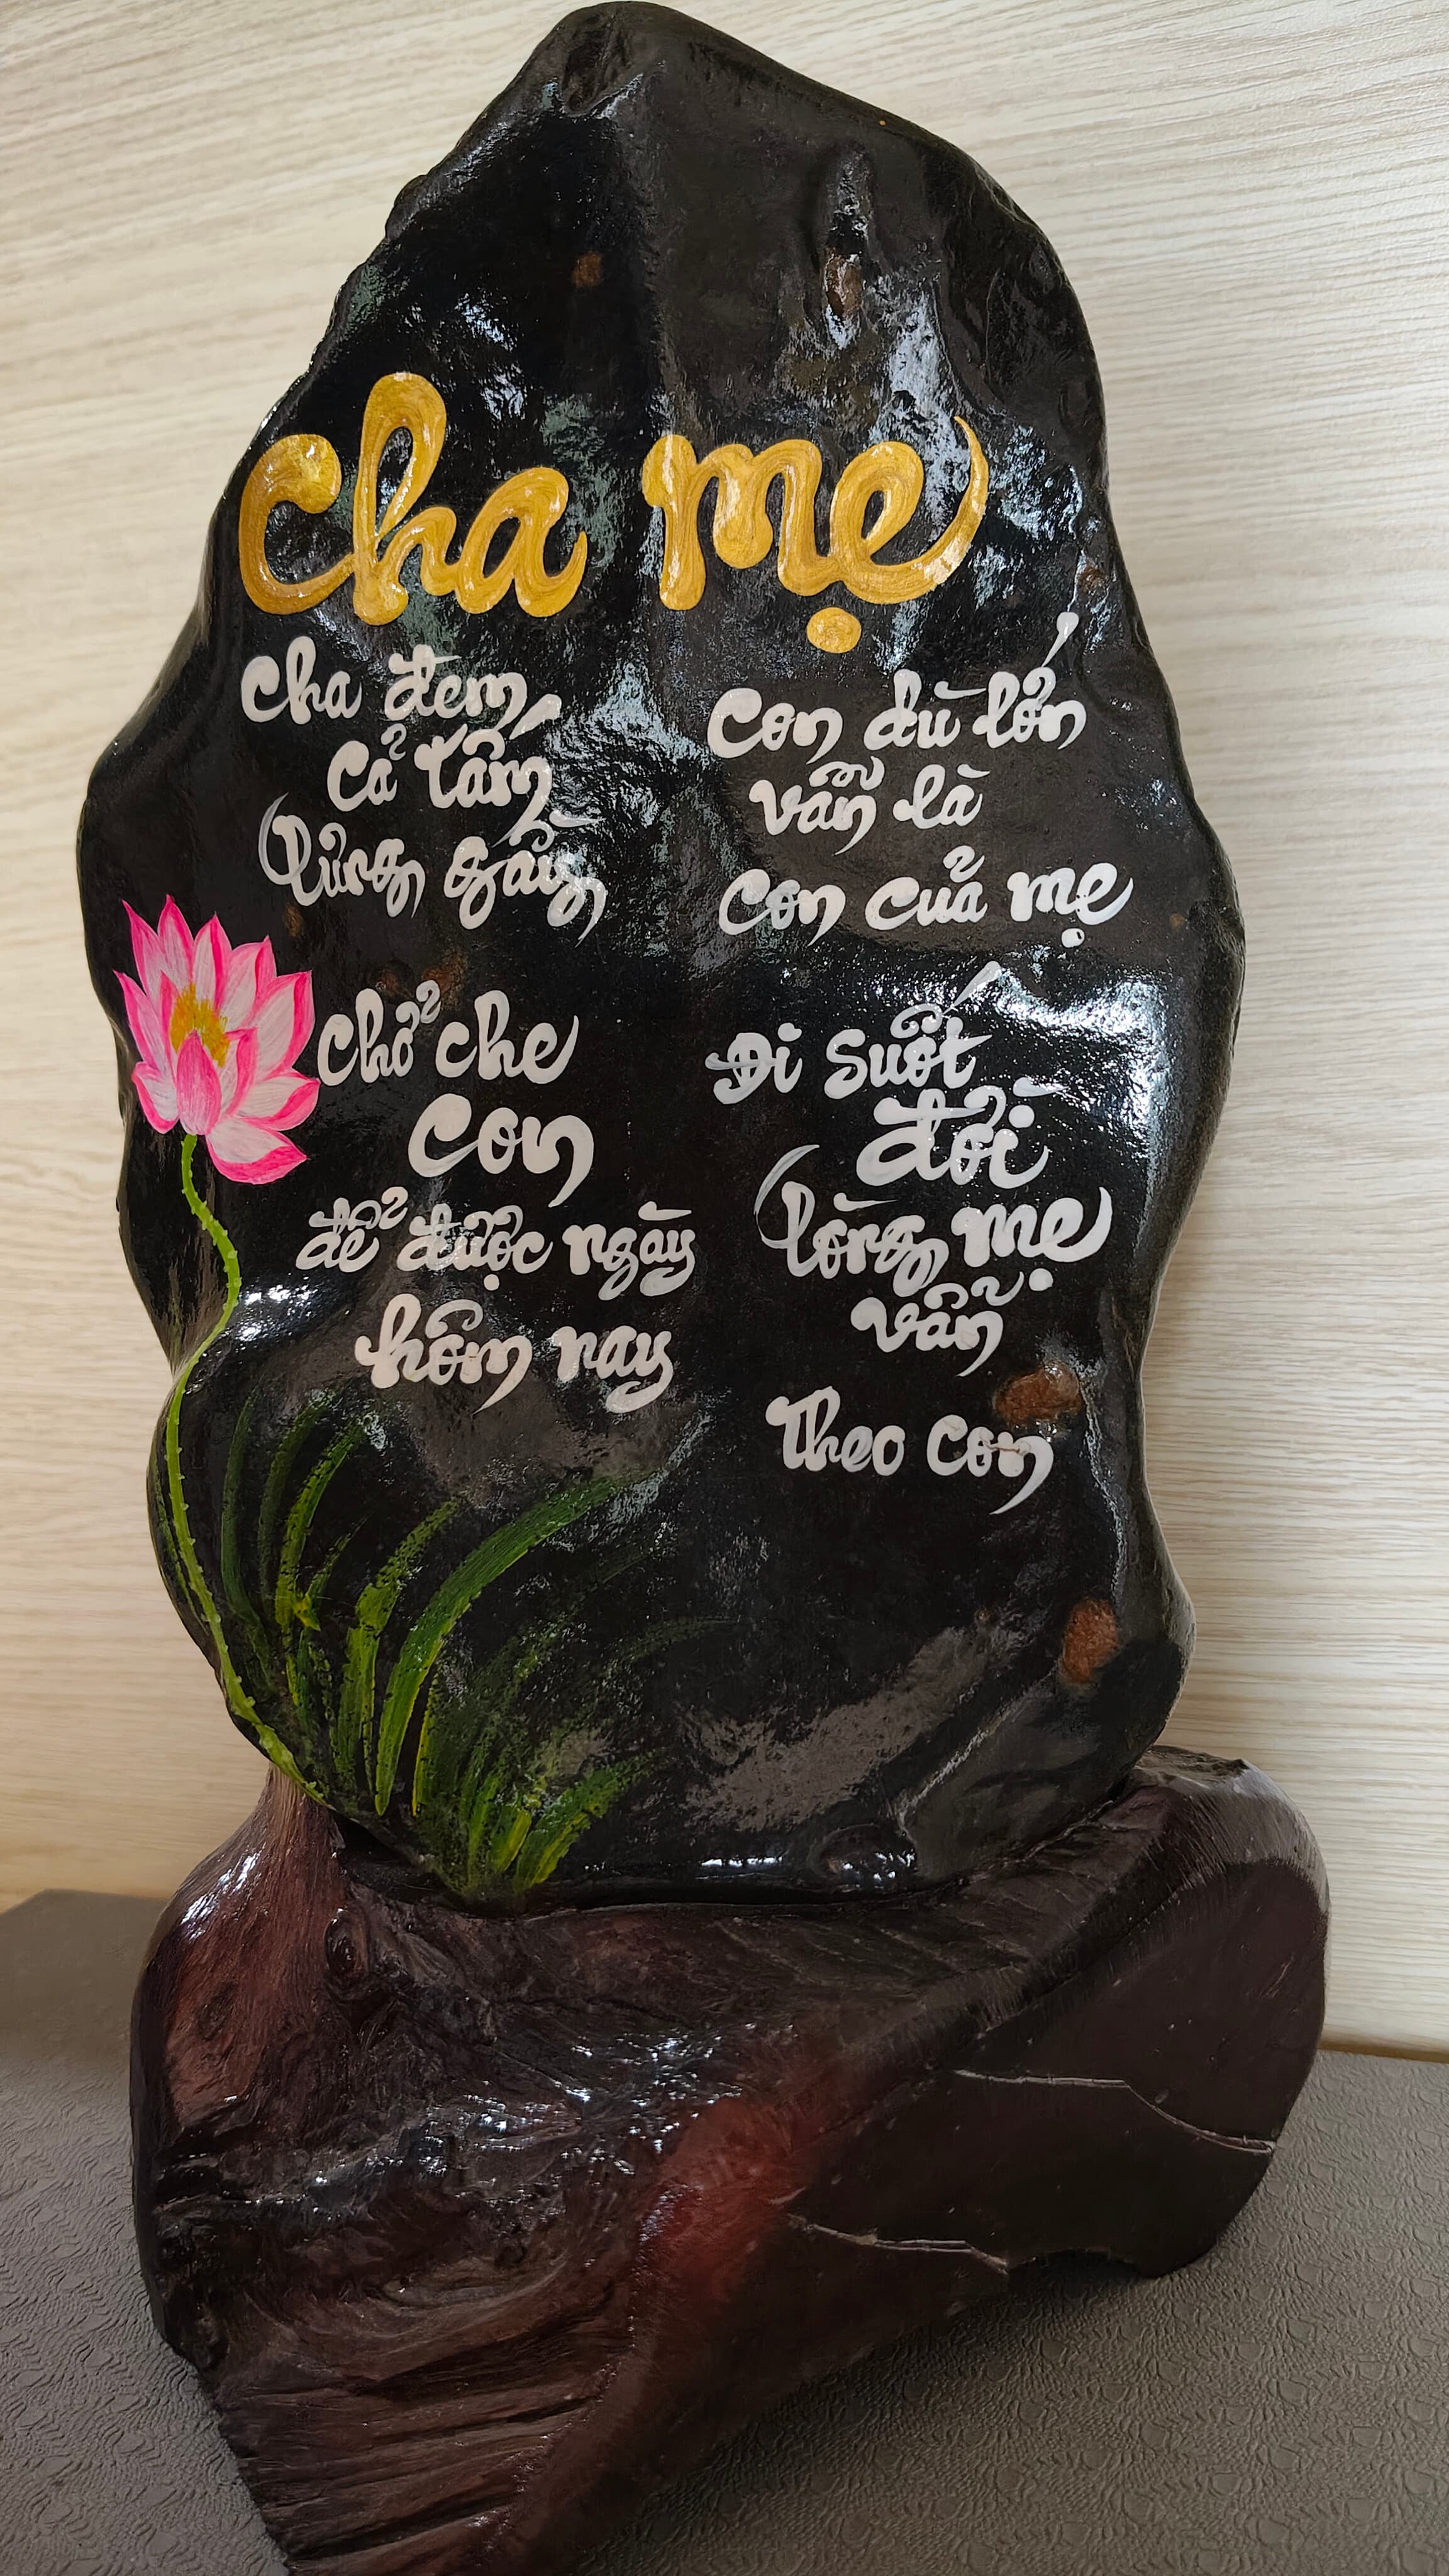 Cha mẹ
Cha đem
cả tấm
lưng gầy
Chở che
con
để được ngày
hôm nay
Con dù lớn
vẫn là
con của mẹ
Đi suốt
đời
lòng mẹ
vẫn
Theo con